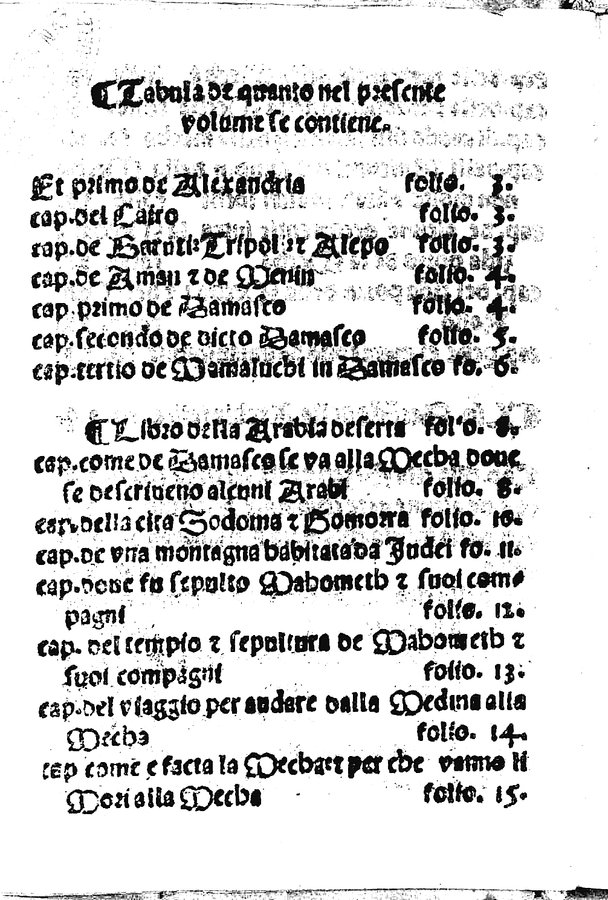 ¶ Tabula de quanto nel presente
volume se contiene.
Et primo de Alexandria folio. 3.
cap.del Cairo folio. 3.
cap.de Baruti:Tripoli:⁊ Alepo folio. 3.
cap.de Aman ⁊ de Menin folio. 4.
cap.primo de Damasco folio. 4.
cap.secondo de dicto Damasco folio. 5.
cap.tertio de Mamaluchi in Damasco fo. 6.
¶ Libro della Arabia deserta folio. 8.
cap.come de Damasco se va alla Mecha doue
se descriueno alcuni Arabi folio. 8.
cap.della cita Sodoma ⁊ Gomorra folio. 10.
cap.de vna montagna habitata da Judei fo. 11.
cap.doue fu sepulto Mahometh ⁊ suoi com-
pagni folio. 12.
cap. del tempio ⁊ sepultura de Mahometh ⁊
suoi compagni folio. 13.
cap.del viaggio per andare dalla Medina alla
Mecha folio. 14.
cap come e facta la Mecha:⁊ per che vanno li
Mori alla Mecha folio. 15.